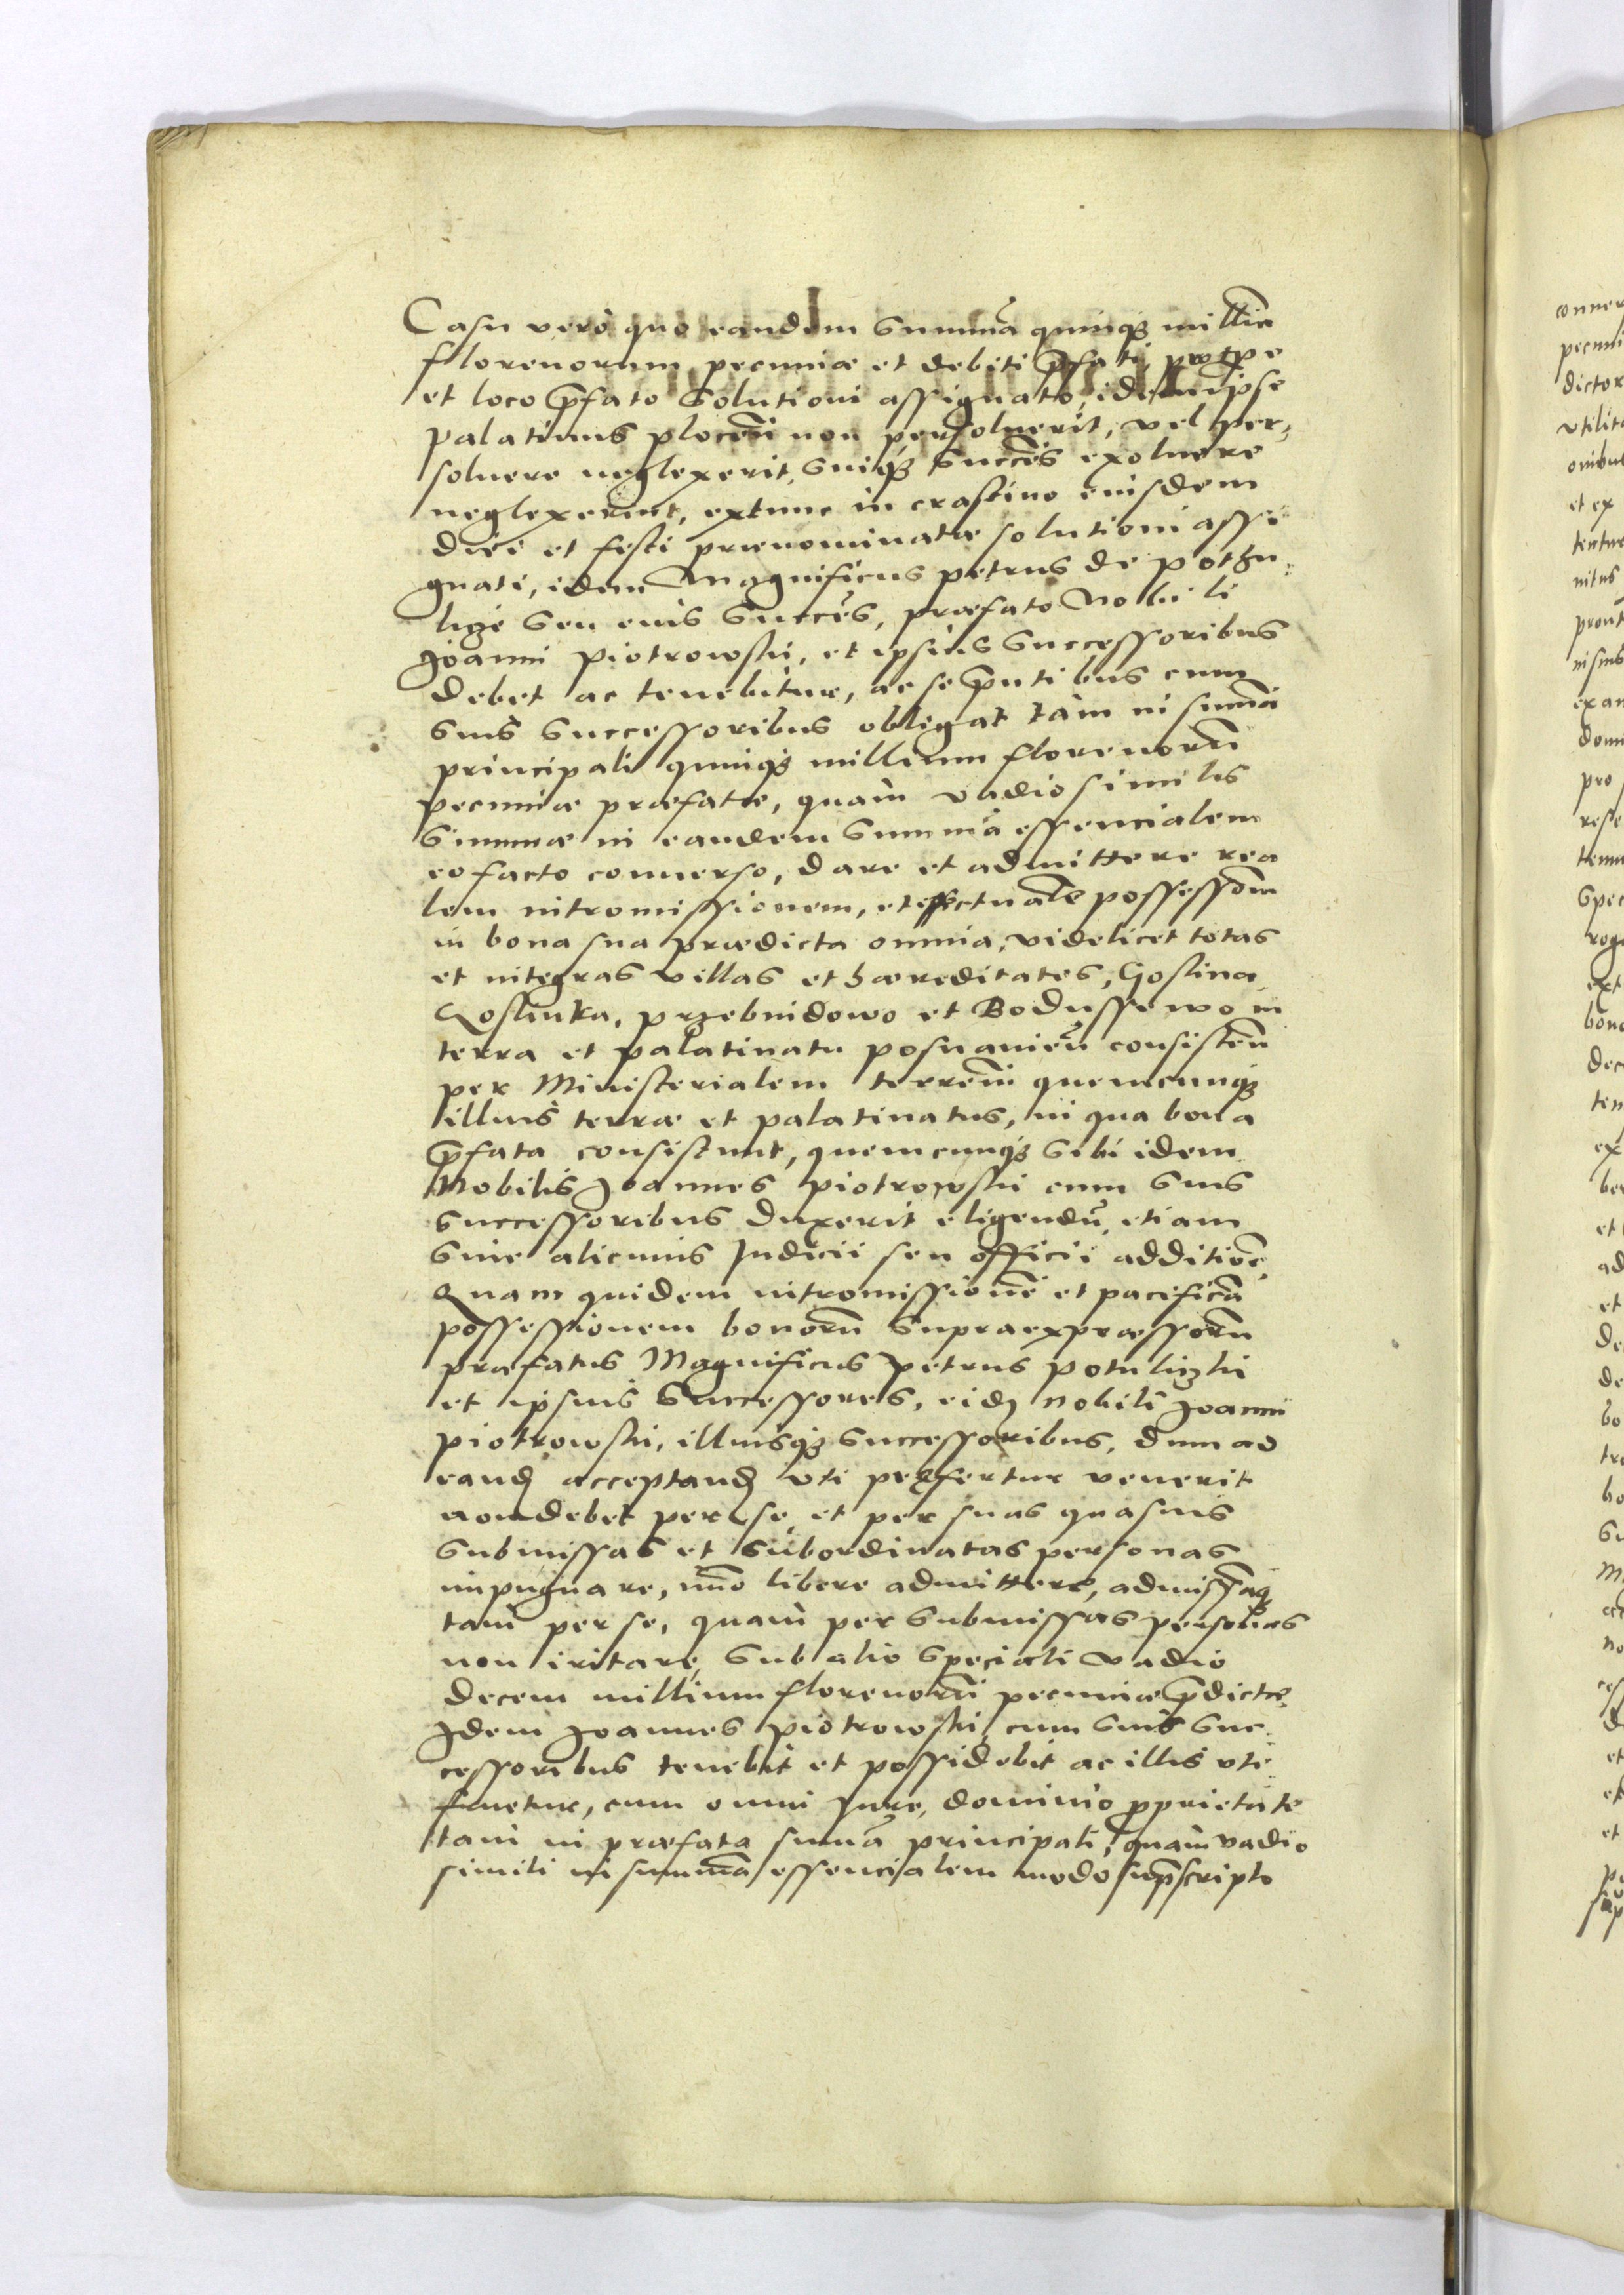 Casu vero quo eandem summā quinq₃ milliā
florenorum pecuniæ et debiti p̄fati, pro tpe
et loco p̄fato solutioni assignato, idem ipse
palatinus plocen̄ non persoluerit, vel per,
soluere neglexerit, suiq₃ succēs exoluere
neglexerint, extunc in crastino euisdem
diei et festi prænominatæ solutioni assi
gnati, idem Magnificus petrus de pothu
lize seu euis succēs, præfato Nobili
Joanni Piotrowski, et ipsius successoribus
debet ac tenebitur, ac se p̄ntibus cum
suis successoribus obligat tam in sum̄a
principali quinq₃ millium florenorū
pecuniæ præfatæ, quam vadio similis
summæ in eandem summā essencialem
eo facto conuerso, dare et admittere rea
lem intromissionem, et effectualē possessōm
in bona sua prædicta omnia, videlicet totas
et integras villas et hæreditates, Goslina
Goslinka, przebuidowo et Bodussewo in
terra et palatinatu posnanien̄ consisten̄
per Ministerialem terren̄ quemcunq₃
illius terræ et palatinatus, in qua bona
p̄fata consistunt, quemcunq₃ sibi idem
Nobilis Joannes Piotrowski cum suis
successoribus duxerit eligendū, etiam
sine alicuius Judicii seu officii additiōe
Quam quidem intromissionē et pacificā
possessionem bonorū supraexpressorū
præfatus Magnificus petrus potulizki
et ipsius successores, eidē nobili Joanni
piotrowski, illiusq₃ successoribus, dum ad
eand̄ acceptand̄ vti præfertur venerit
non debet per se, et per suas quasuis
submissas et subordinatas personas
impugnare, imo libere admittere, admissāq₃
tam per se, quam per submissas personas
non iritare, sub alio speciali vadio
decem millium florenorū pecuniæ p̄dictæ
Idem Joannes piotrowski, cum suis suc
cessoribus tenebit et possidebit ac illis vti
fruetur, cum omni Jure, dominio proprietate
tam in præfata sum̄a principali, quam vadio
simili in summā essencialem modo sup̄scripto